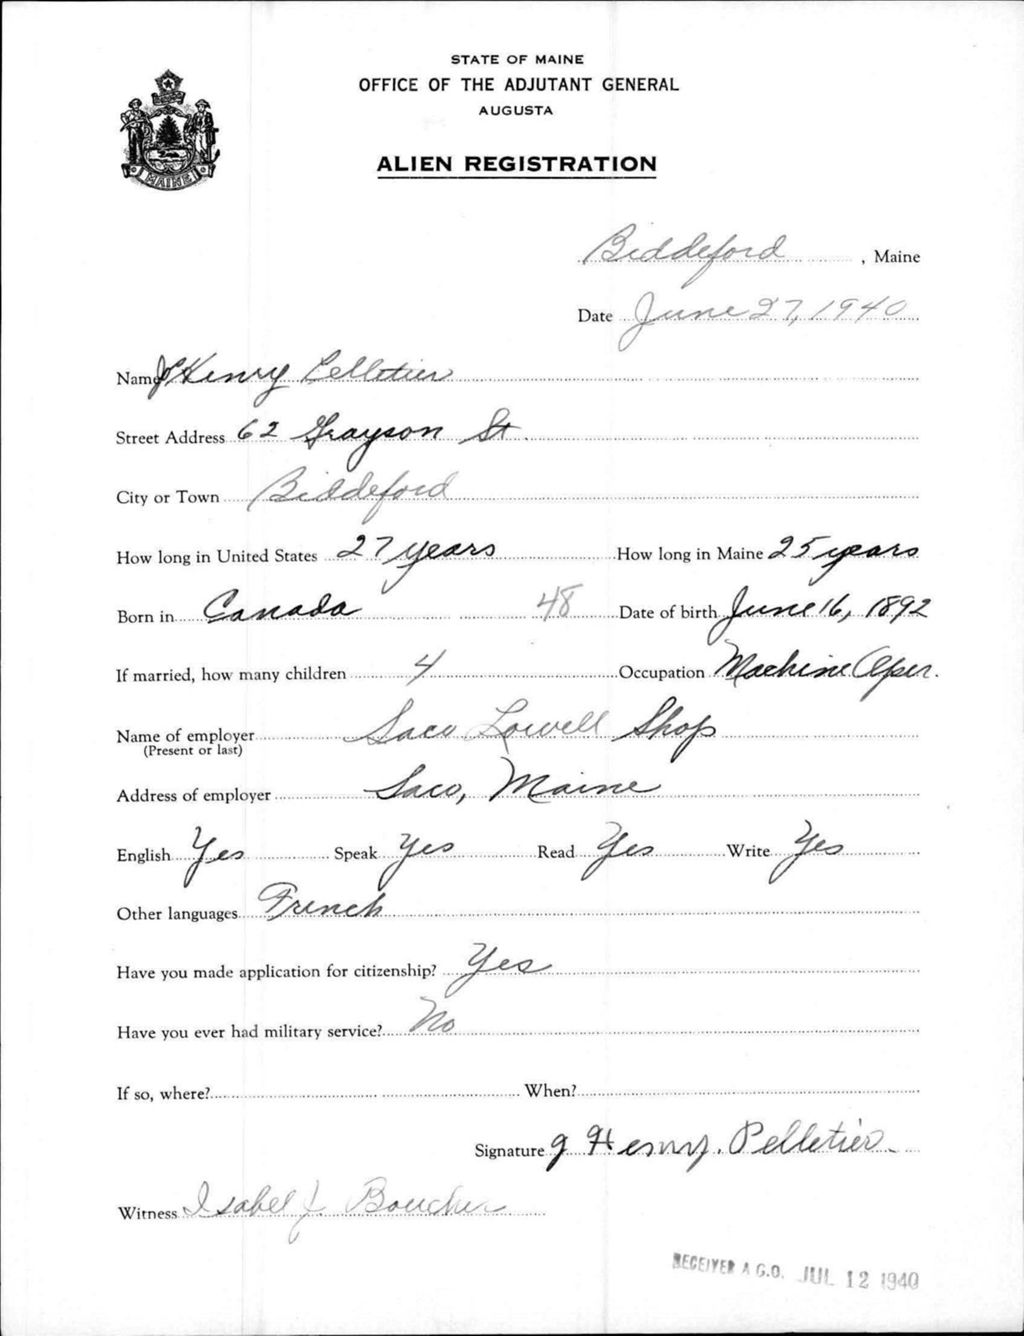 STATE OF MAINE
OFFICE OF THE ADJUTANT GENERAL
AUGUSTA
ALIEN REGISTRATION
MAINE
Biddeford, Maine
Date June 27, 1940
Name J Henry Pelletier
Street Address 62 Grayson St.
City or Town Biddeford
How long in United States 27 years How long in Maine 25 years
Born in Canada 48 Date of birth June 16, 1892
If married, how many children 4 Occupation Machine Oper.
Name of employer Saco Lowell Shop
(Present or last)
Address of employer Saco, Maine
English Yes Speak Yes Read Yes Write Yes
Other languages French
Have you made application for citizenship? Yes
Have you ever had military service? No
If so, where? When?
Signature J Henry Pelletier
Witness Isabel J. Boucher
RECEIVED A.G.O. JUL 12 1940